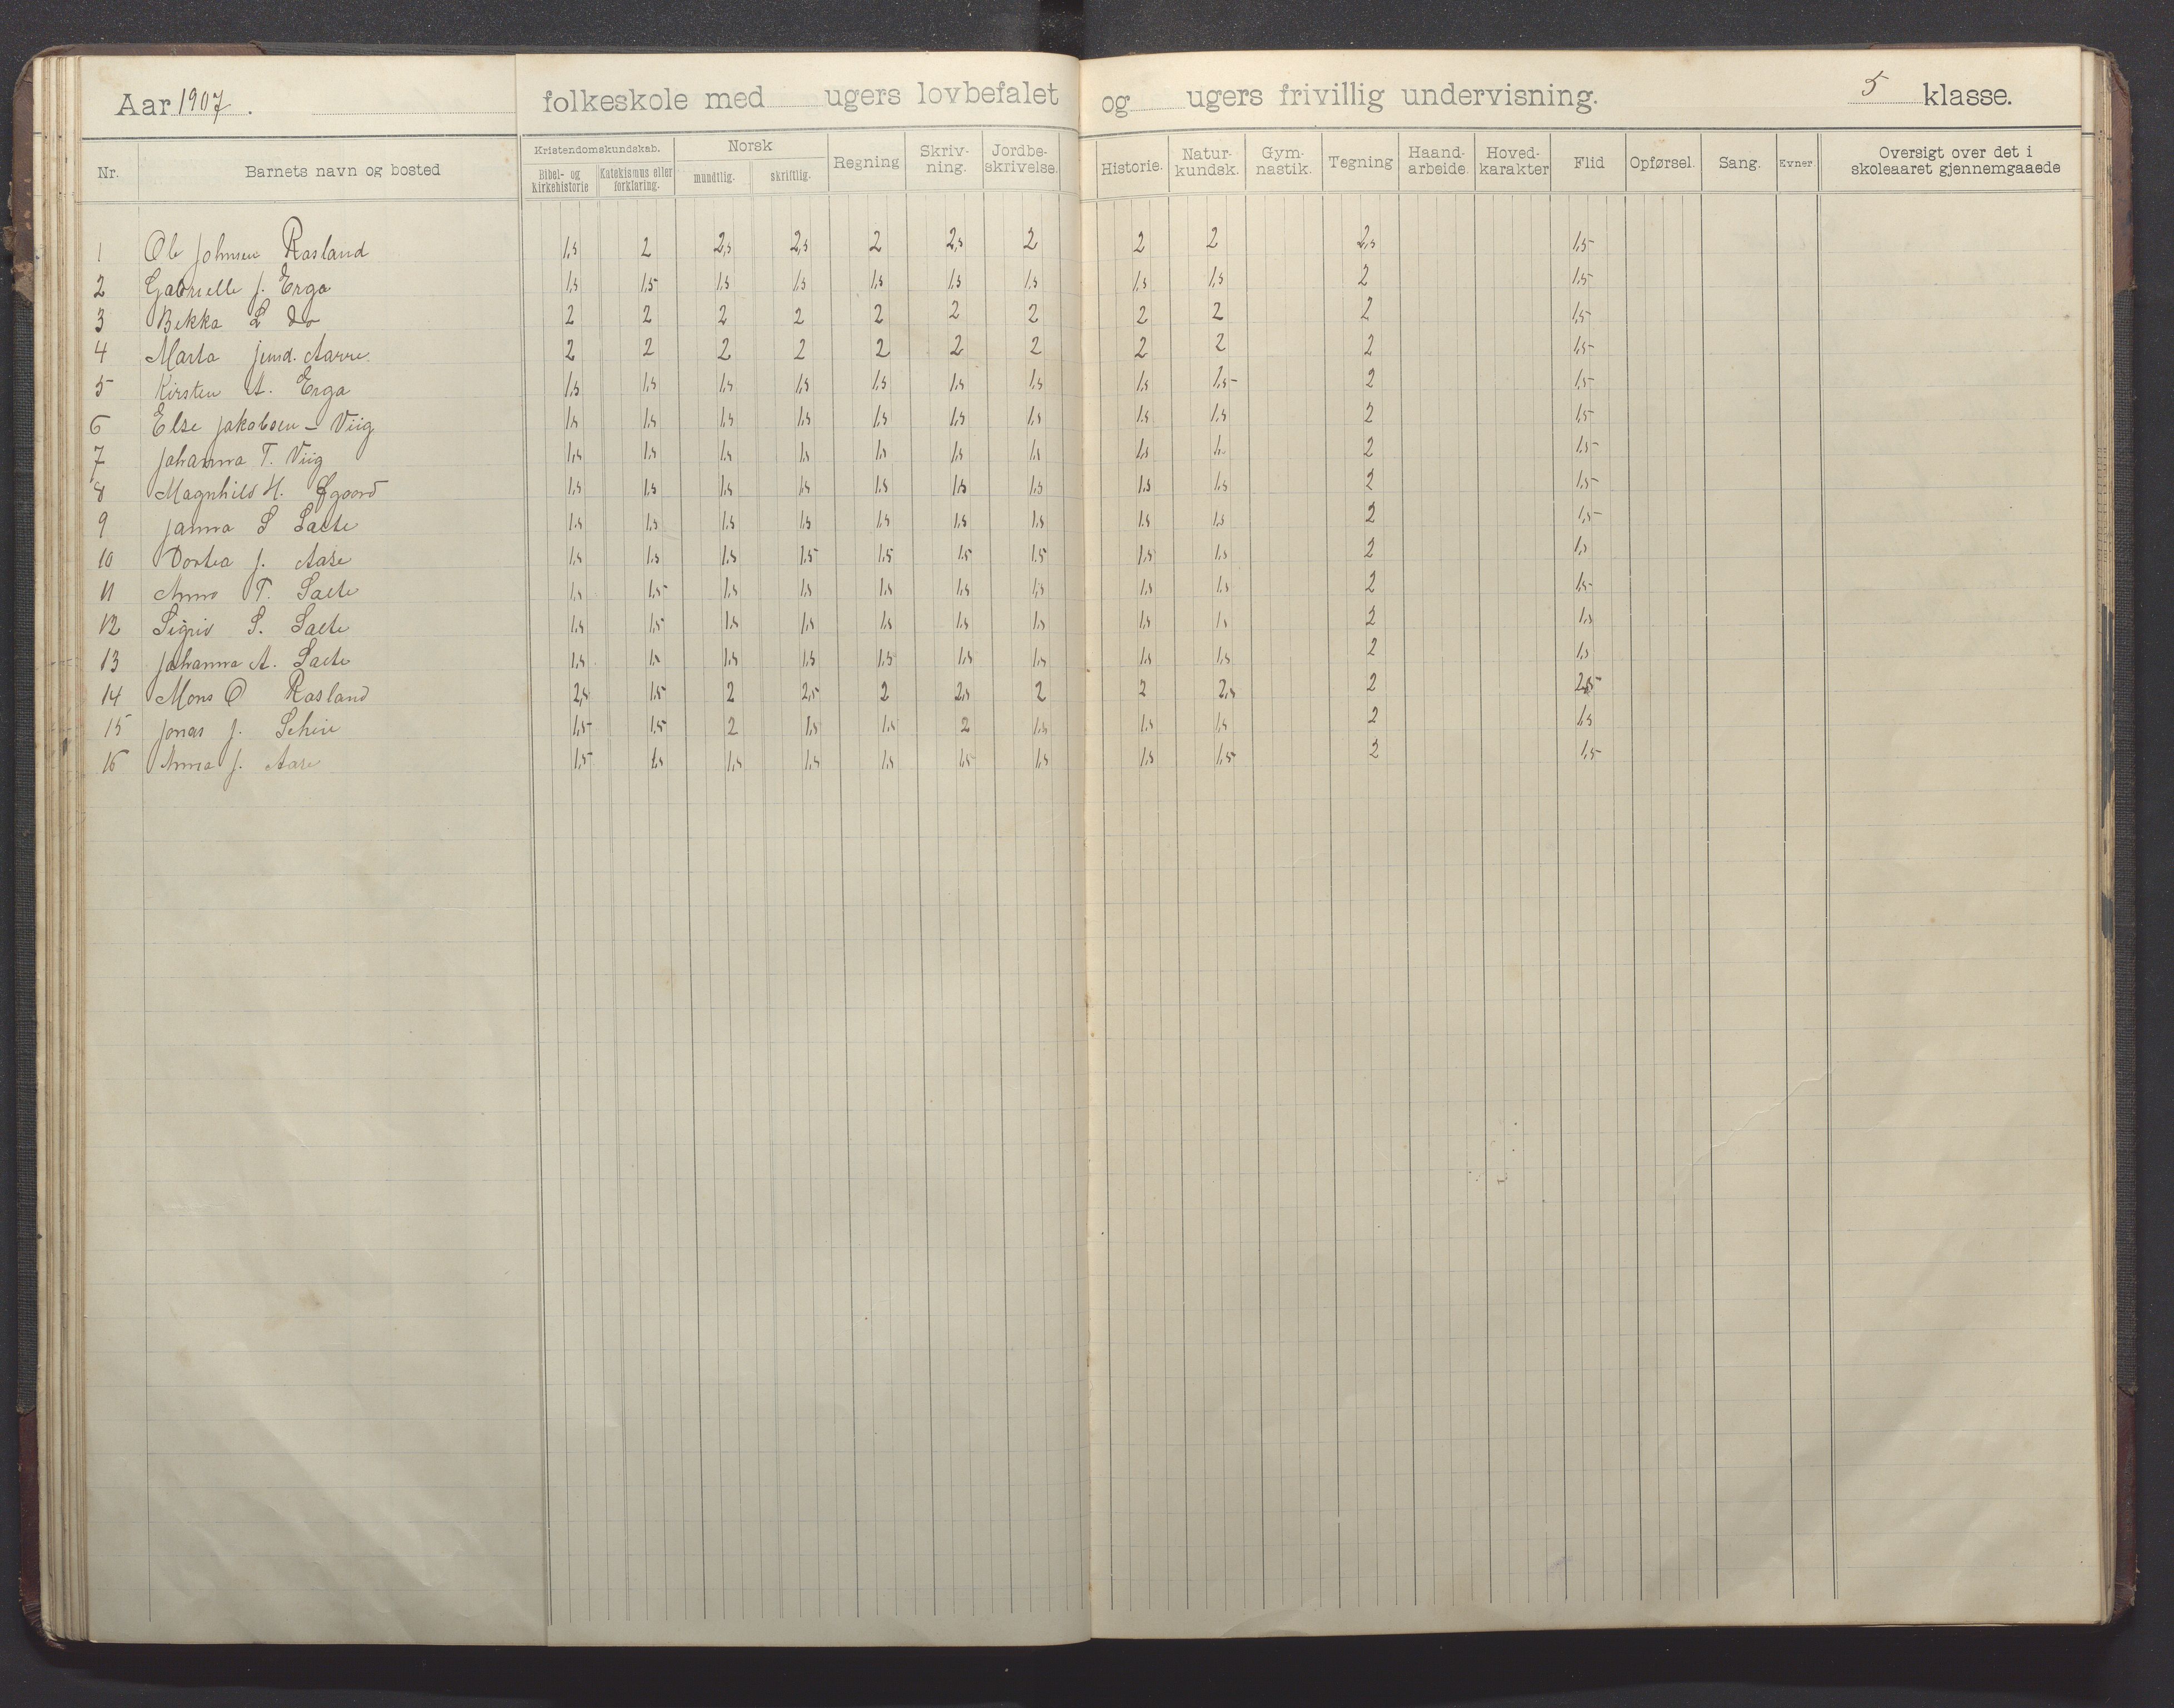 Aar 1907. folkeskole med ugers lovbefalet og ugers frivillig undervisning. 5 klasse.
Nr. Barnets navn og bosted Kristendomskundskab. Bibel- og Kirkehistorie Katekismus eller forklaring. Norsk mundtlig. skriftlig. Regning Skriv-ning. Jordbe-skrivelse. Historie. Natur-kundsk. Gym-nastik. Tegning Haand-arbeide. Hoved-karakter Flid Opførsel. Sang. Evner Oversigt over det i skoleaaret gjennemgaaede
1 Ole Johnsen Rasland 1,5 2 2,5 2,5 2 2,5 2 2 2 2,5 1,5
2 Gabrielle J. Erga 1,5 1,5 1,5 1,5 1,5 1,5 1,5 1,5 1,5 2 1,5
3 Bekka L do 2 2 2 2 2 2 2 2 2 2 1,5
4 Marta Aarre 2 2 2 2 2 2 2 2 2 2 1,5
5 Kirsten A. Erga 1,5 1,5 1,5 1,5 1,5 1,5 1,5 1,5 1,5 2 1,5
6 Else Jakobsen - Viig 1,5 1,5 1,5 1,5 1,5 1,5 1,5 1,5 1,5 2 1,5
7 Johanna T. Viig 1,5 1,5 1,5 1,5 1,5 1,5 1,5 1,5 1, 2 1,5
8 Magnhild H. 1,5 1,5 1,5 1,5 1,5 1,5 1,5 1,5 1,5 2 1,5
9 Janna S Salte 1,5 1,5 1,5 1,5 1,5 1,5 1,5 1,5 1,5 2 1,5
10 Dortea J. Aase 1,5 1,5 1,5 1,5 1,5 1,5 1,5 1,5 1,5 2 1,5
11 Anna T. Salte 1,5 1,5 1,5 1,5 1,5 1,5 1,5 1,5 1,5 2 1,5
12 Sigrid S. Salte 1,5 1,5 1,5 1,5 1,5 1,5 1,5 1,5 1,5 2 1,5
13 Johanna A. Salte 1,5 1,5 1,5 1,5 1,5 1,5 1,5 1,5 1,5 2 1,5
14 Mons O Rasland 2,5 1,5 2 2,5 2 2,5 2 2 2,5 2 2,5
15 Jonas J. 1,5 1,5 2 1,5 1,5 2 1,5 1,5 1,5 2 1,5
16 Anna J. Aase 1,5 1,5 1,5 1,5 1,5 1,5 1,5 1,5 1,5 2 1,5